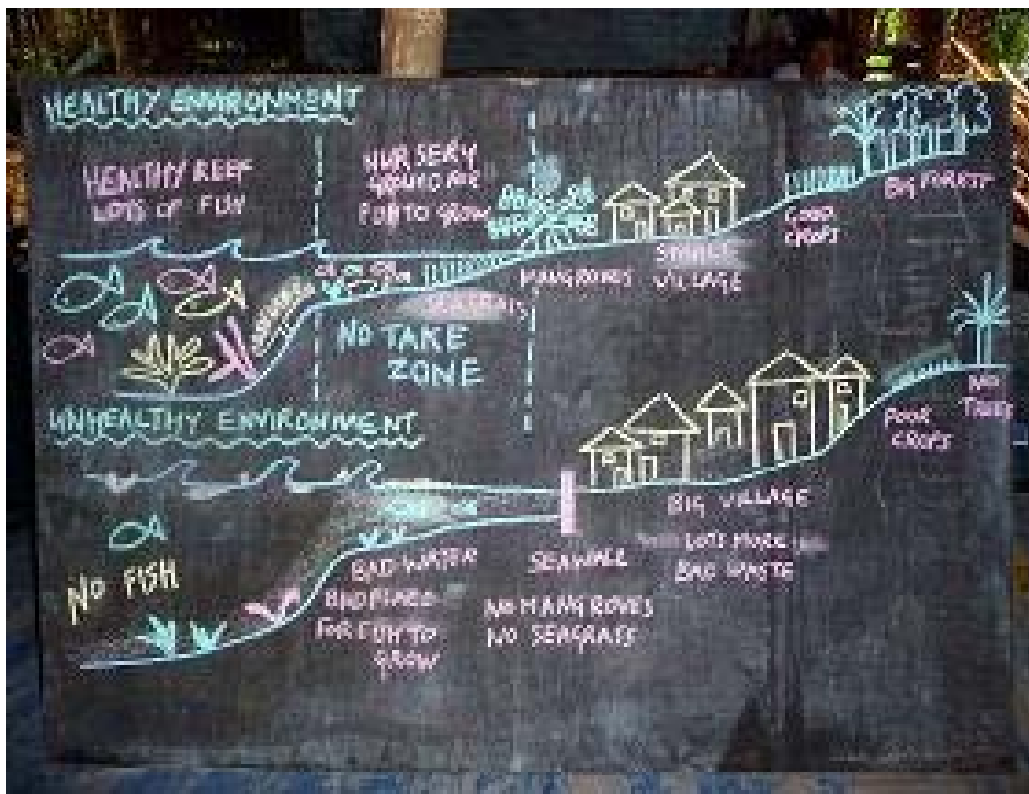 HEALTHY ENVIRONMENT
HEALTHY REEF
LOTS OF FISH
NURSERY
GROUND FOR
FISH TO GROW
MANGROVES
SMALL
VILLAGE
GOOD
CROPS
BIG FOREST
SEAGRASS
NO TAKE
ZONE
UNHEALTHY ENVIRONMENT
NO FISH
BAD WATER
BAD PLACE
FOR FISH TO
GROW
SEAWALL
NO MANGROVES
NO SEAGRASS
BIG VILLAGE
LOTS MORE
BAD WASTE
POOR
CROPS
NO
TREES